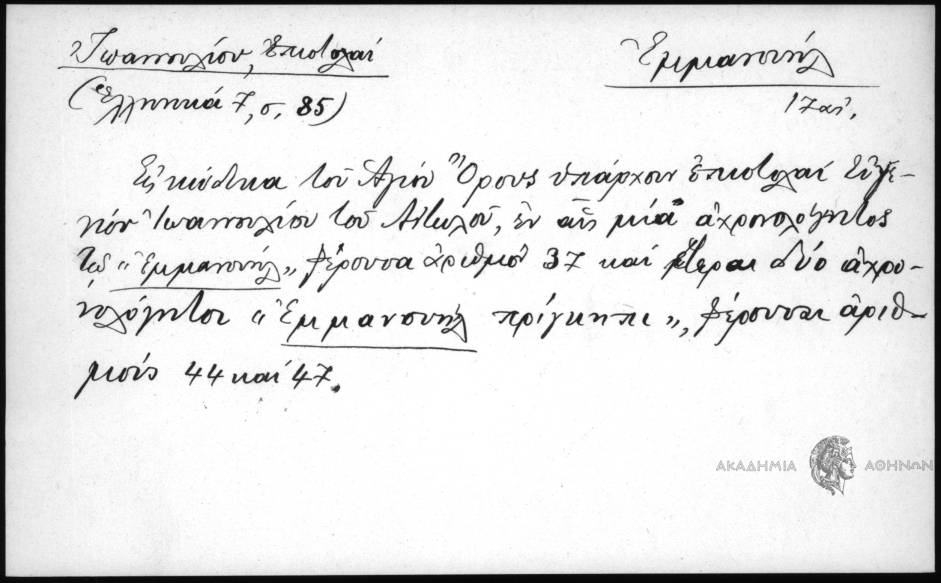 Ἰωαννουλίου, Ἐπιστολαί
(Ἑλληνικά 7, σ. 85)
Ἐμμανουήλ
17 αἰ.
Εἰς κώδικα τοῦ Ἁγίου Ὄρους ὑπάρχουν ἐπιστολαί Εὐγε-
νίου Ἰωαννουλίου τοῦ Αἰτωλοῦ, ἐν αἷς μία ἀχρονολόγητος
τῷ „Ἐμμανουήλ„ φέρουσα ἀριθμόν 37 καί ἕτεραι δύο ἀχρο-
νολόγητοι „Ἐμμανουήλ πρίγκηπι„, φέρουσαι ἀριθ-
μούς 44 καί 47.
ΑΚΑΔΗΜΙΑ ΑΘΗΝΩΝ